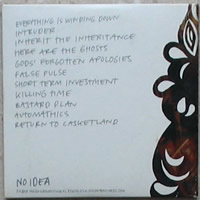 EVERYTHING IS WINDING DOWN
INTRUDER
INHERIT THE INHERITANCE
HERE ARE THE GHOSTS
GODS' FORGOTTEN APOLOGIES
FALSE PULSE
SHORT TERM INVESTMENT
KILLING TIME
BASTARD PLAN
AUTOMATHICS
RETURN TO CASKETLAND
NO IDEA